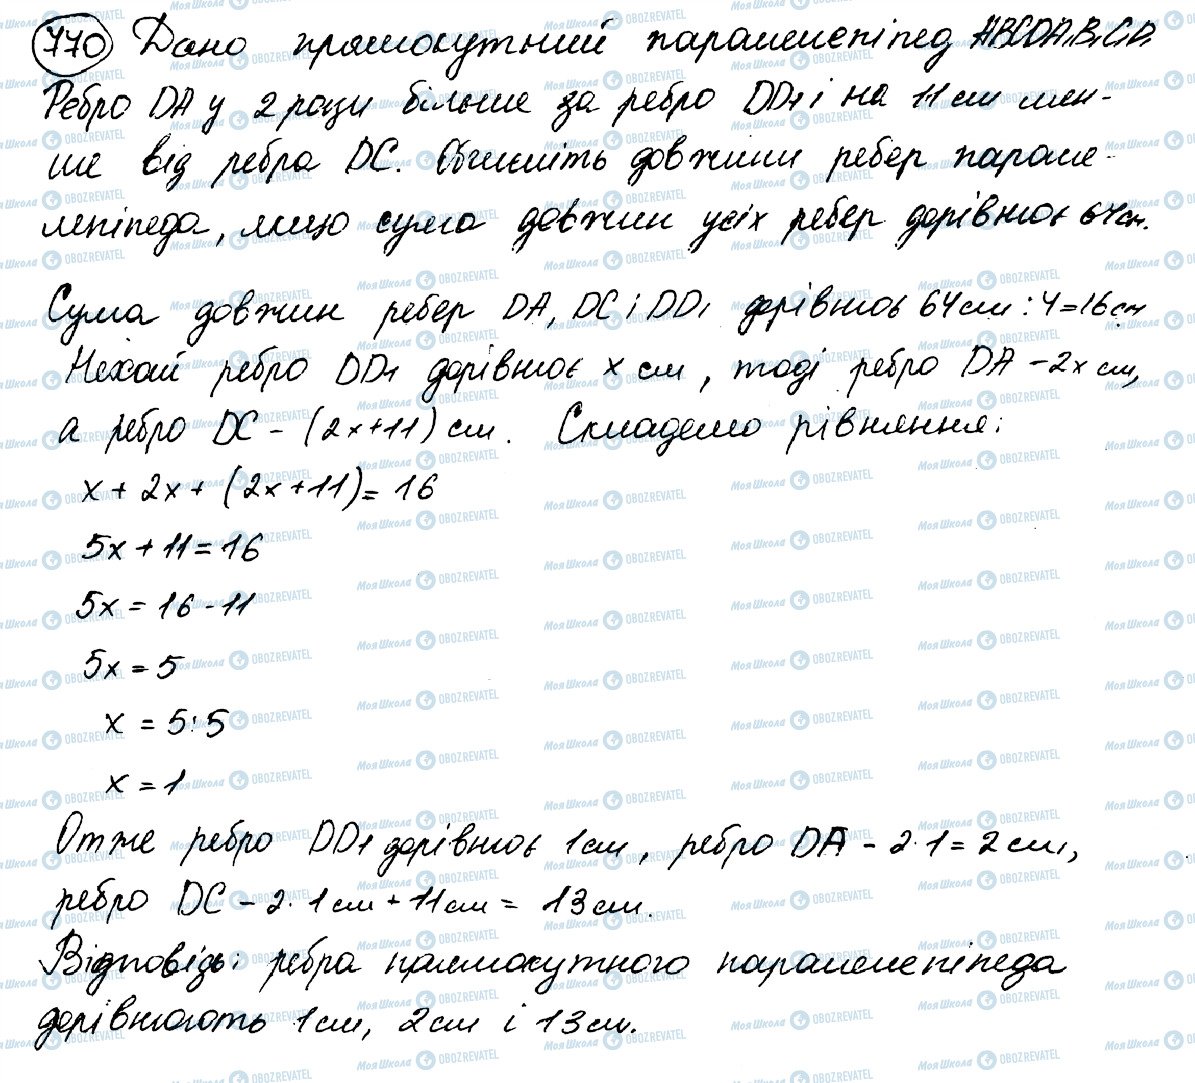 770 Дано прямокутний паралелепіпед ABCDA₁B₁C₁D₁
Ребро DA у 2 рази більше за ребро DD₁ і на 11 см мен-
ше від ребра DC. Обчисліть довжини ребер парале-
лепіпеда, якщо сума довжин усіх ребер дорівнює 64см.
Сума довжин ребер DA, DC і DD₁ дорівнює 64см : 4=16см
Нехай ребро DD₁ дорівнює x см, тоді ребро DA - 2x см,
а ребро DC - (2x+11) см. Складемо рівняння:
x + 2x + (2x+11) = 16
5x + 11 = 16
5x = 16 - 11
5x = 5
x = 5:5
x = 1
Отже ребро DD₁ дорівнює 1см, ребро DA - 2·1 = 2 см,
ребро DC - 2·1см + 11см = 13см.
Відповідь: ребра прямокутного паралелепіпеда
дорівнюють 1см, 2см і 13см.
МояШкола OBOZREVATEL